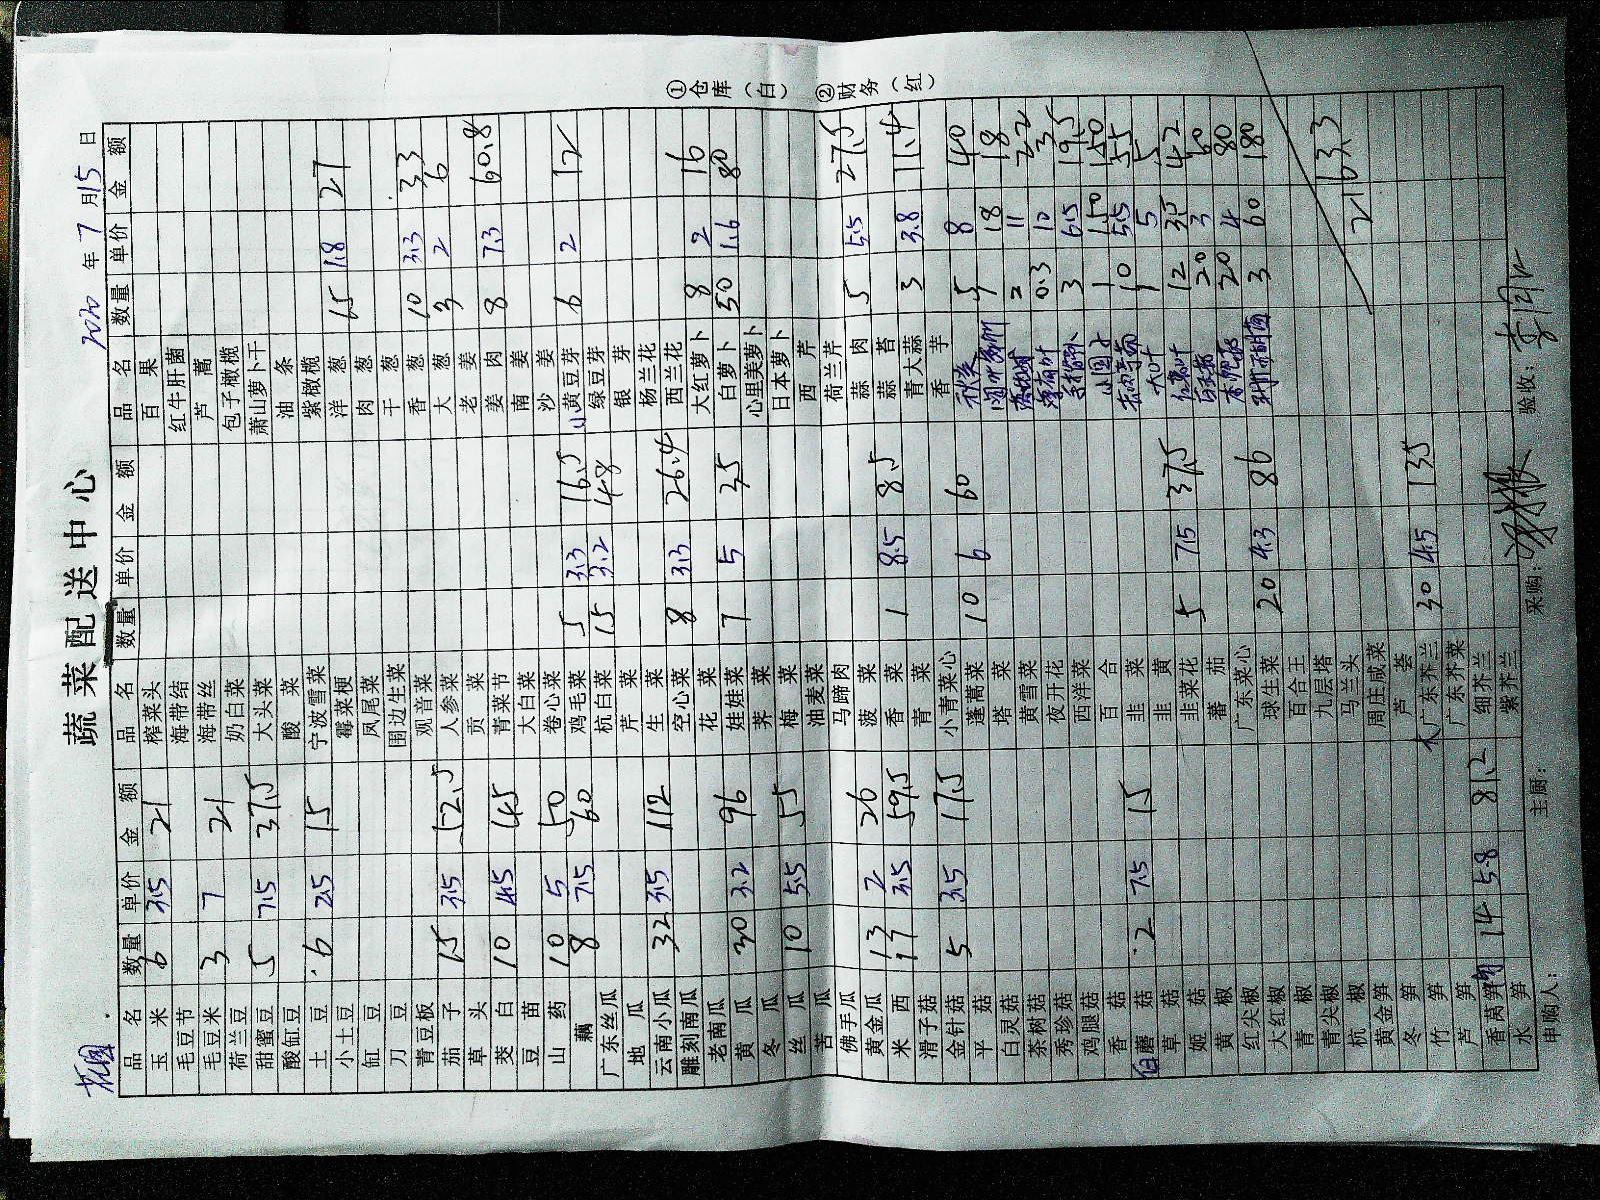 蔬菜配送中心
花园 2020 年 7 月 15 日
品名 数量 单价 金额 品名 数量 单价 金额 品名 数量 单价 金额
玉米 6 3.5 21 榨菜头 百果
毛豆节 海带结 红牛肝菌
毛豆米 3 7 21 海带丝 芦蒿
荷兰豆 奶白菜 包子橄榄
甜蜜豆 5 7.5 37.5 大头菜 萧山萝卜干
酸缸豆 酸菜 油条
土豆 6 2.5 15 宁波雪菜 紫橄榄
小土豆 霉菜梗 洋葱 15 1.8 27
缸豆 凤尾菜 肉葱
刀豆 围边生菜 干葱
青豆板 观音菜 香葱 10 3.3 33
茄子 15 3.5 52.5 人参菜 大葱 3 2 6
草头 贡菜 老姜
茭白 10 4.5 45 青菜节 姜肉 8 7.3 60.8
豆苗 大白菜 南姜
山药 10 5 50 卷心菜 沙姜
藕 8 7.5 60 鸡毛菜 5 3.3 16.5 黄豆芽 6 2 12
广东丝瓜 杭白菜 15 3.2 48 绿豆芽
地瓜 芹菜 银芽
云南小瓜 32 3.5 112 生菜 杨兰花
雕刻南瓜 空心菜 8 3.3 26.4 西兰花
老南瓜 花菜 大红萝卜 8 2 16
黄瓜 30 3.2 96 娃娃菜 7 5 35 白萝卜 50 1.6 80
冬瓜 荠菜 心里美萝卜
丝瓜 10 5.5 55 梅菜 日本萝卜
苦瓜 油麦菜 西芹
佛手瓜 马蹄肉 荷兰芹
黄金瓜 13 2 26 菠菜 蒜肉 5 5.5 27.5
米西 17 3.5 59.5 香菜 1 8.5 8.5 蒜苔
滑子菇 青菜 青大蒜 3 3.8 11.4
金针菇 5 3.5 17.5 小青菜心 香芋
平菇 蓬蒿菜 10 6 60 秋葵 5 8 40
白灵菇 塔菜 18 18
茶树菇 黄雪菜 2 11 22
秀珍菇 夜开花 薄荷叶 0.3 10 3
鸡腿菇 西洋菜 3 6.5 19.5
香菇 百合 1 150 150
白蘑菇 2 7.5 15 韭菜 10 5.5 55
草菇 韭黄 大叶 1 5 5
姬菇 韭菜花 5 7.5 37.5 12 3.5 42
黄椒 蕃茄 20 3 60
红尖椒 广东菜心 20 4 80
大红椒 球生菜 20 4.3 86 3 60 180
青椒 百合王
青尖椒 九层塔
杭椒 马兰头 2163.3
黄金笋 周庄咸菜
冬笋 芦荟
竹笋 大广东芥兰 30 4.5 135
芦笋 广东芥菜
香莴笋 14 5.8 81.2 细芥兰
水笋 紫芥兰
申购人： 主厨： 采购： 验收：
①仓库（白） ②财务（红）